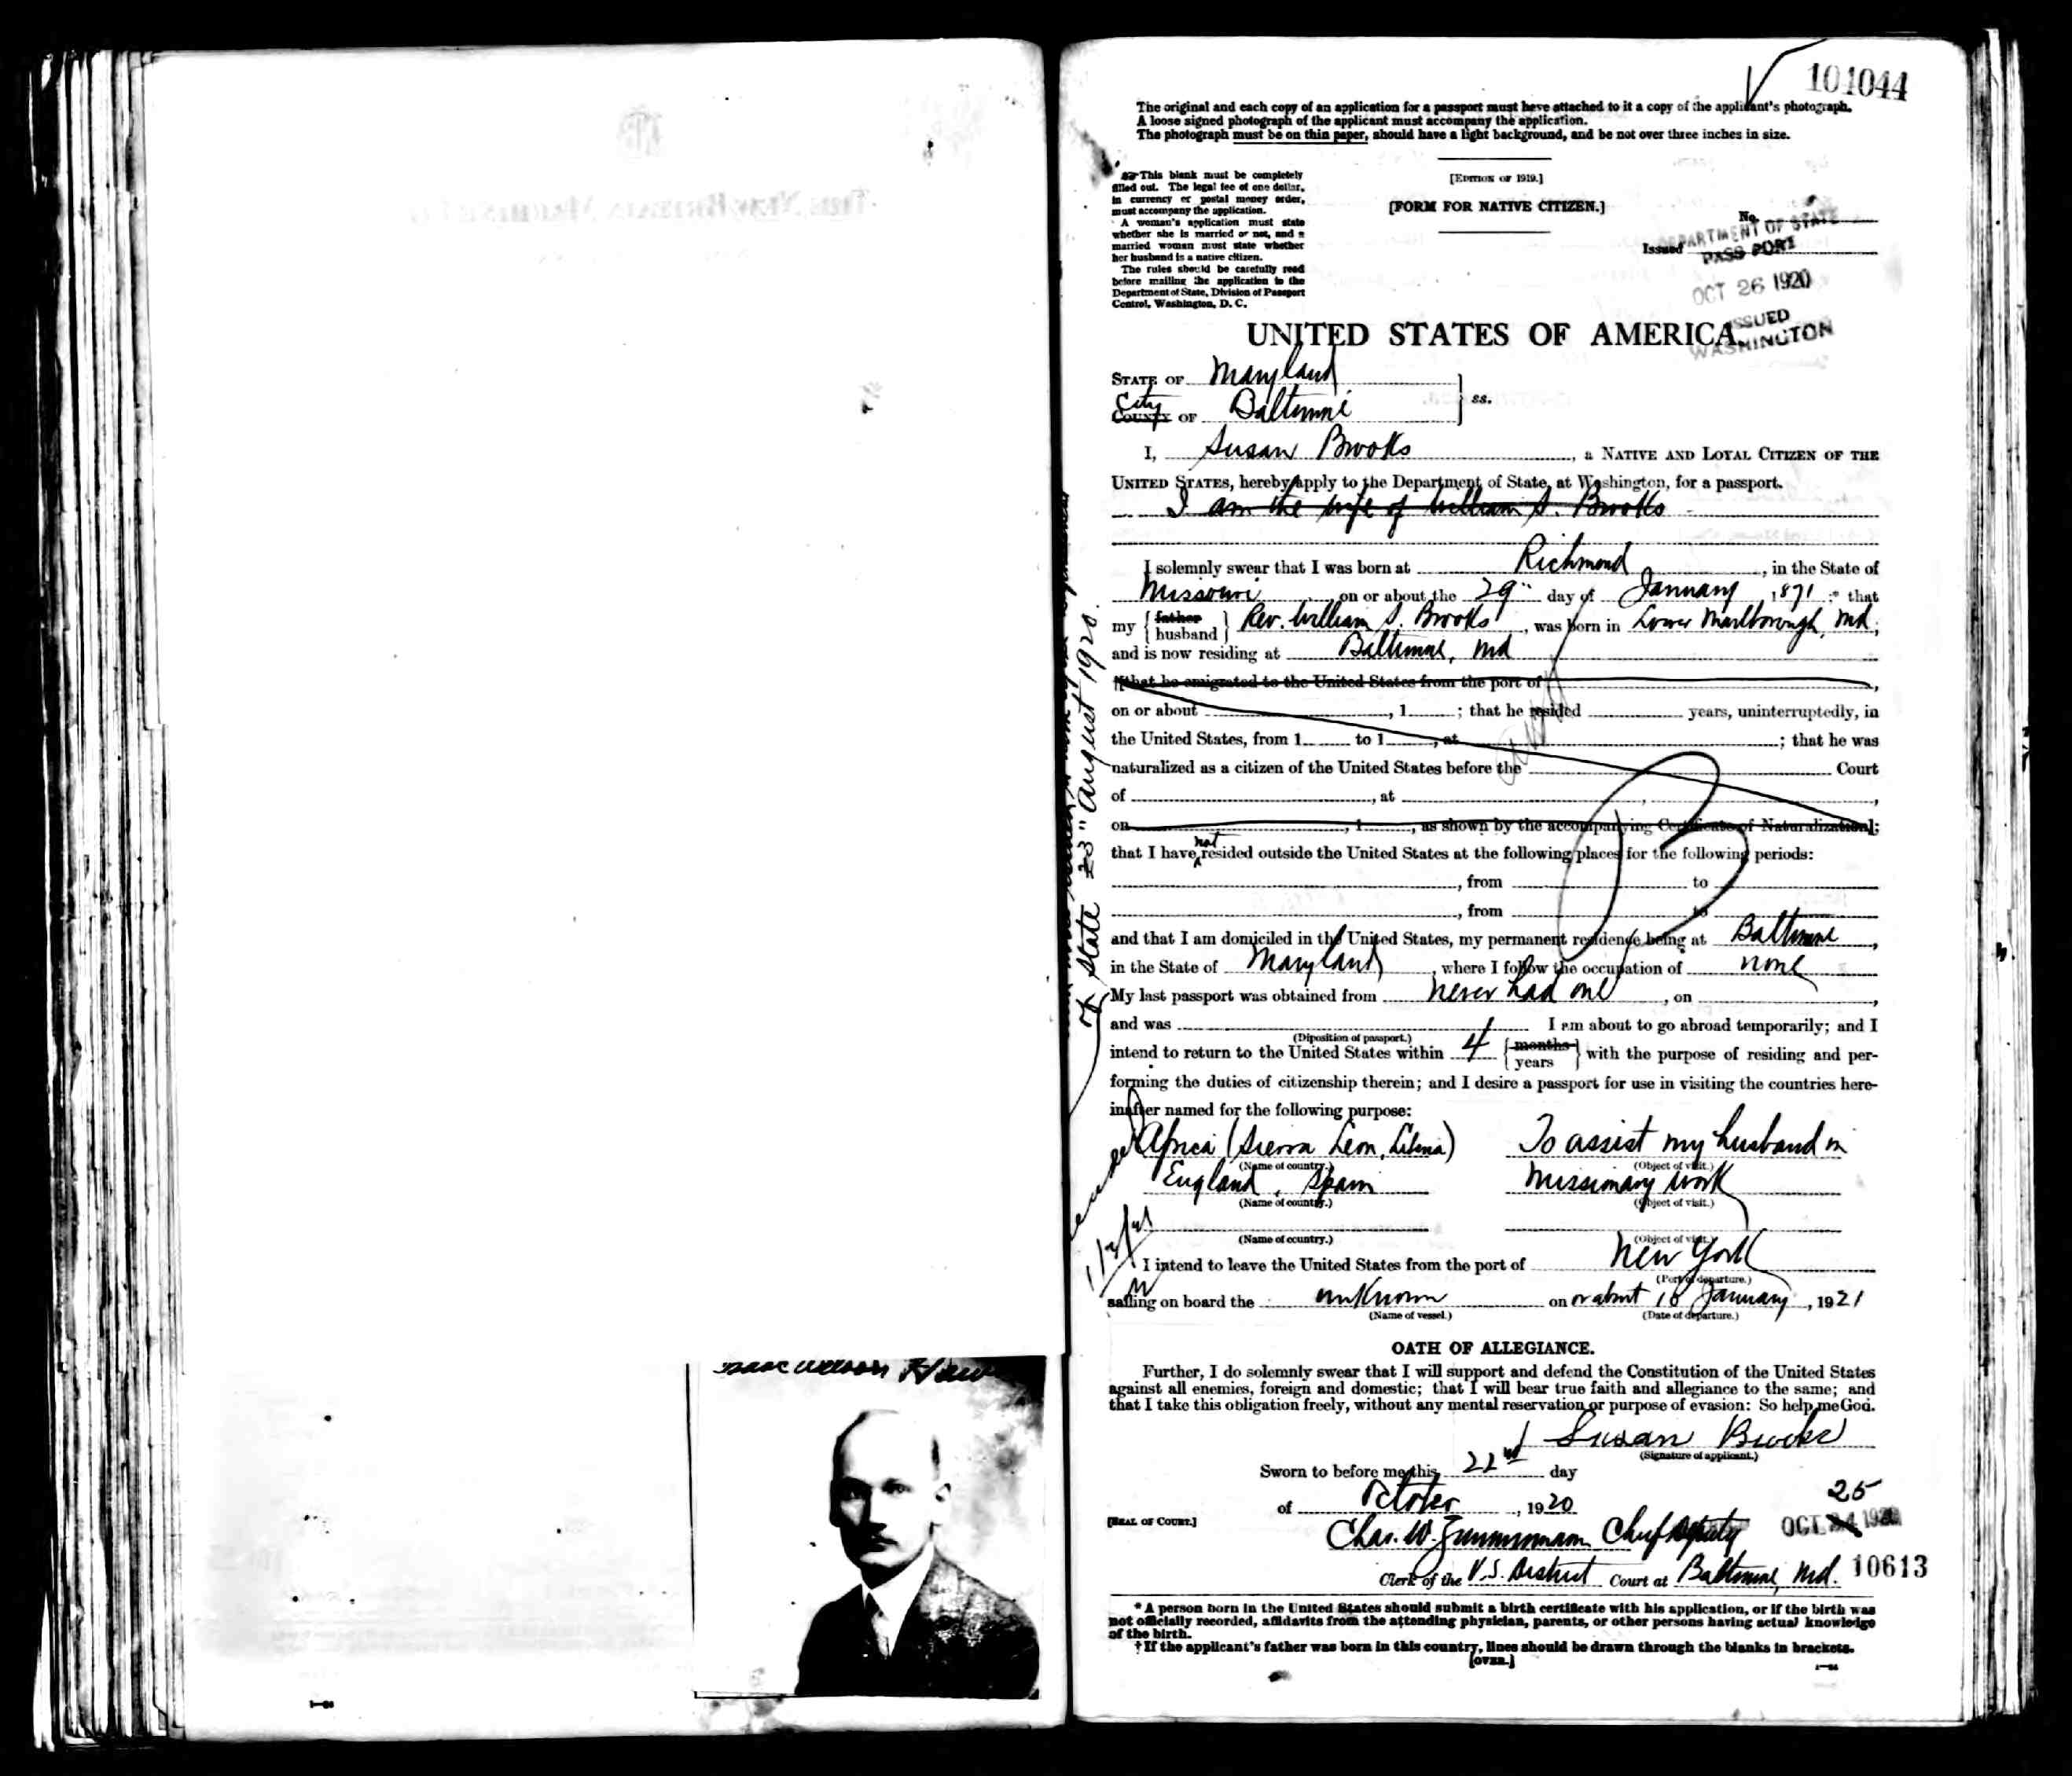 101044
The original and each copy of an application for a passport must have attached to it a copy of the applicant's photograph.
A loose signed photograph of the applicant must accompany the application.
The photograph must be on thin paper, should have a light background, and be not over three inches in size.
This blank must be completely
filled out. The legal fee of one dollar,
in currency or postal money order,
must accompany the application.
A woman's application must state
whether she is married or not, and a
married woman must state whether
her husband is a native citizen.
The rules should be carefully read
before mailing the application to the
Department of State, Division of Passport
Control, Washington, D. C.
[EDITION OF 1919.]
[FORM FOR NATIVE CITIZEN.]
No.
Issued
DEPARTMENT OF STATE
PASSPORT
OCT 26 1920
ISSUED
WASHINGTON
UNITED STATES OF AMERICA.
STATE OF Maryland
City
COUNTY OF Baltimore
ss.
I, Susan Brooks, a NATIVE AND LOYAL CITIZEN OF THE
UNITED STATES, hereby apply to the Department of State, at Washington, for a passport.
I am the wife of William S. Brooks
I solemnly swear that I was born at Richmond, in the State of
Missouri on or about the 29" day of January, 1871;* that
my { father husband } Rev. William S. Brooks, was born in Lower Marlborough, Md,;
and is now residing at Baltimore, Md
†[that he emigrated to the United States from the port of ,
on or about , 1 ; that he resided years, uninterruptedly, in
the United States, from 1 to 1 , at ; that he was
naturalized as a citizen of the United States before the Court
of , at ,
on , 1 , as shown by the accompanying Certificate of Naturalization];
that I have not resided outside the United States at the following places for the following periods:
, from to
, from to
and that I am domiciled in the United States, my permanent residence being at Baltimore,
in the State of Maryland, where I follow the occupation of none
My last passport was obtained from never had one, on ,
and was I am about to go abroad temporarily; and I
(Diposition of passport.)
intend to return to the United States within 4 { months years } with the purpose of residing and per-
forming the duties of citizenship therein; and I desire a passport for use in visiting the countries here-
inafter named for the following purpose:
Africa (Sierra Leon, Liberia) To assist my husband in
(Name of country.) (Object of visit.)
England, Spain Missionary work
(Name of country.) (Object of visit.)
(Name of country.) (Object of visit.)
I intend to leave the United States from the port of New York
(Port of departure.)
sailing on board the unknown on or about 18 January, 1921
(Name of vessel.) (Date of departure.)
OATH OF ALLEGIANCE.
Further, I do solemnly swear that I will support and defend the Constitution of the United States
against all enemies, foreign and domestic; that I will bear true faith and allegiance to the same; and
that I take this obligation freely, without any mental reservation or purpose of evasion: So help me God.
Susan Brooks
(Signature of applicant.)
Sworn to before me this 22nd day
of October, 1920
25
[SEAL OF COURT.]
Chas. W. Zimmermann Chief Deputy
OCT 24 1920
Clerk of the U.S. District Court at Baltimore, Md.
10613
* A person born in the United States should submit a birth certificate with his application, or if the birth was
not officially recorded, affidavits from the attending physician, parents, or other persons having actual knowledge
of the birth.
† If the applicant's father was born in this country, lines should be drawn through the blanks in brackets.
[OVER.]
of State 23" August 1920.